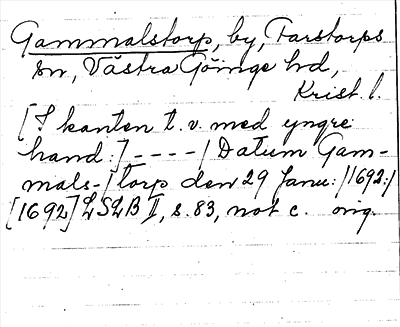 Gammalstorp, by, Farstorps
sn, Västra Göinge hd,
Krist. l.
[I kanten t. v. med yngre
hand:] - - - - / Datum Gam-
mals- / torp den 29 Janu: / 1692: /
[1692] LSLB II, s. 83, not c. orig.